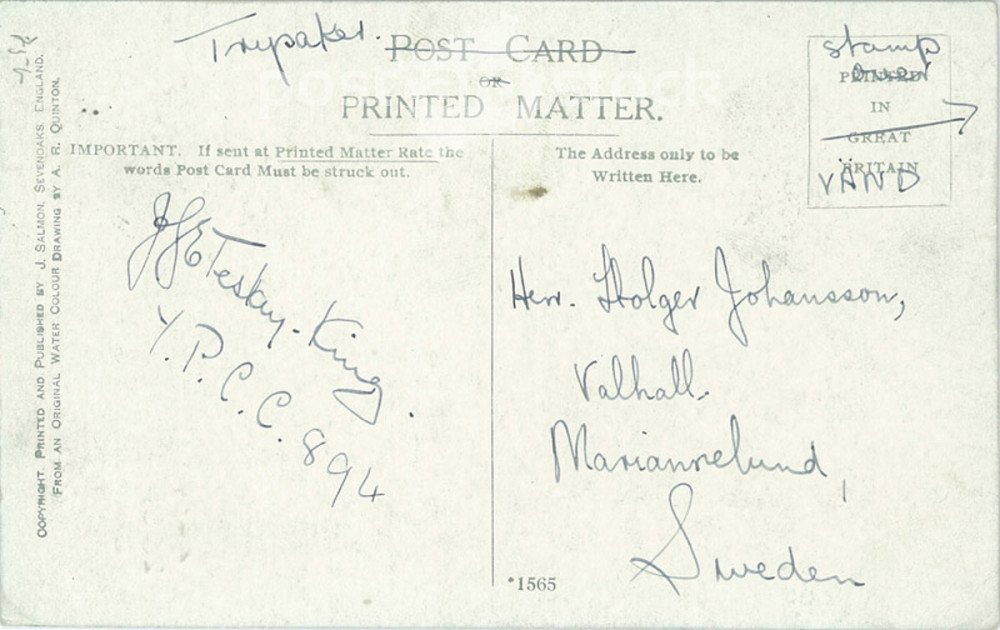 POST CARD
OR
PRINTED MATTER.
stamp
over
PRINTED
IN
GREAT
BRITAIN
VÄND
IMPORTANT. If sent at Printed Matter Rate the
words Post Card Must be struck out.
The Address only to be
Written Here.
COPYRIGHT. PRINTED AND PUBLISHED BY J. SALMON, SEVENOAKS, ENGLAND.
FROM AN ORIGINAL WATER COLOUR DRAWING BY A. R. QUINTON.
King.
Y.P.C.C. 894
Herr. Holger Johansson,
Valhall.
Mariannelund,
Sweden
*1565